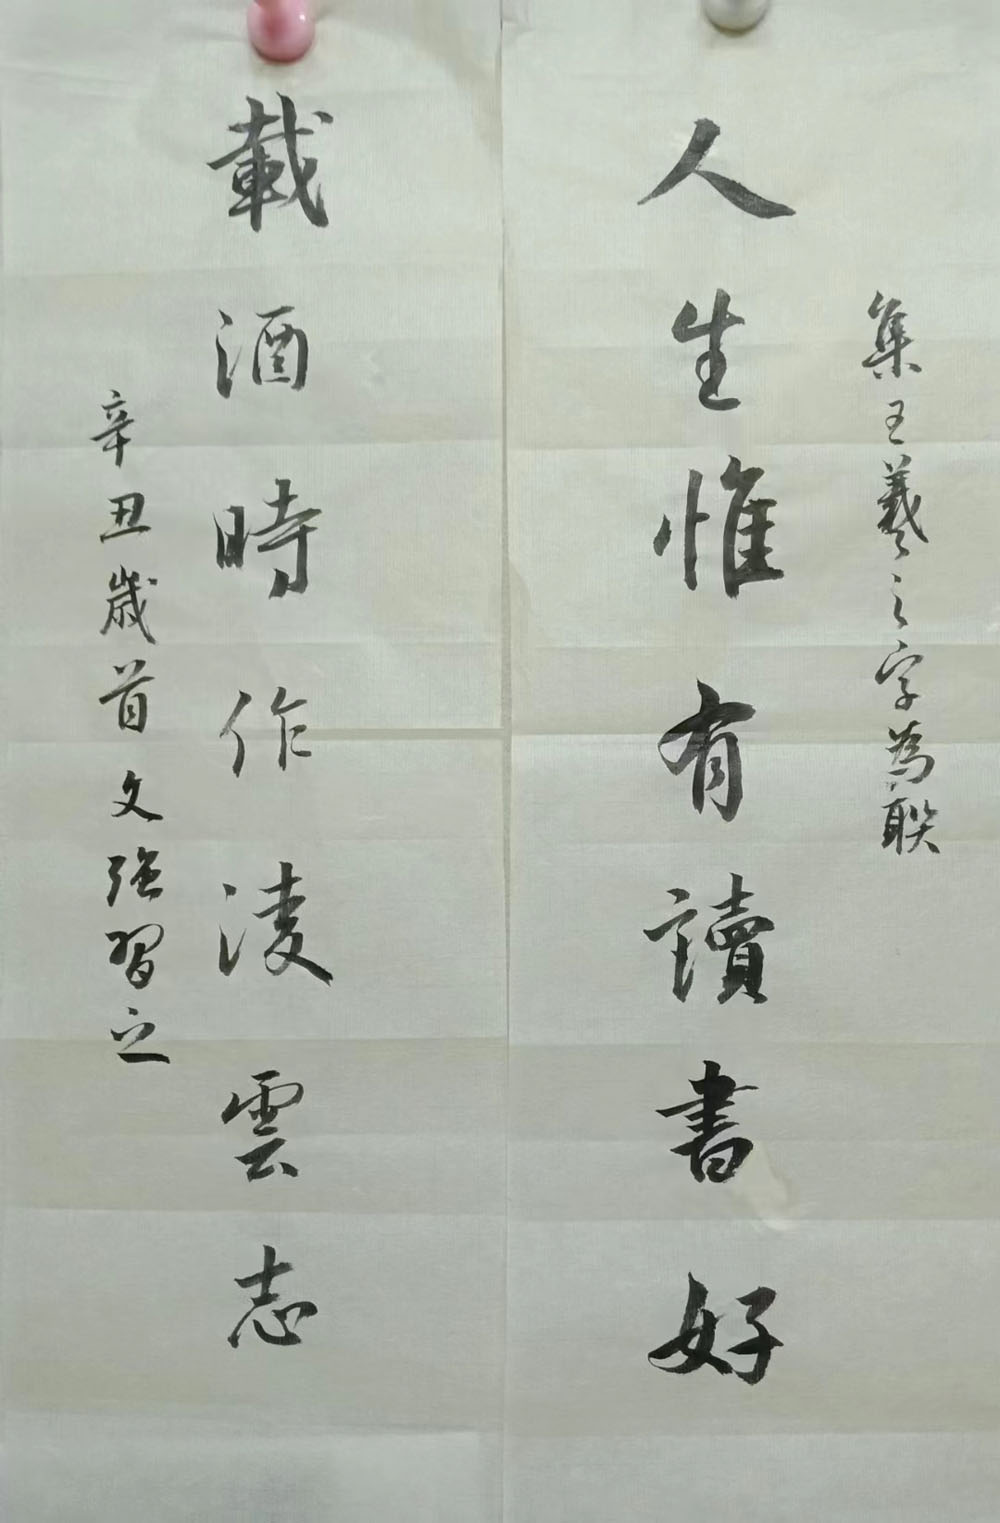 集王羲之字為聯
人生惟有讀書好
載酒時作淩雲志
辛丑歲首文強習之